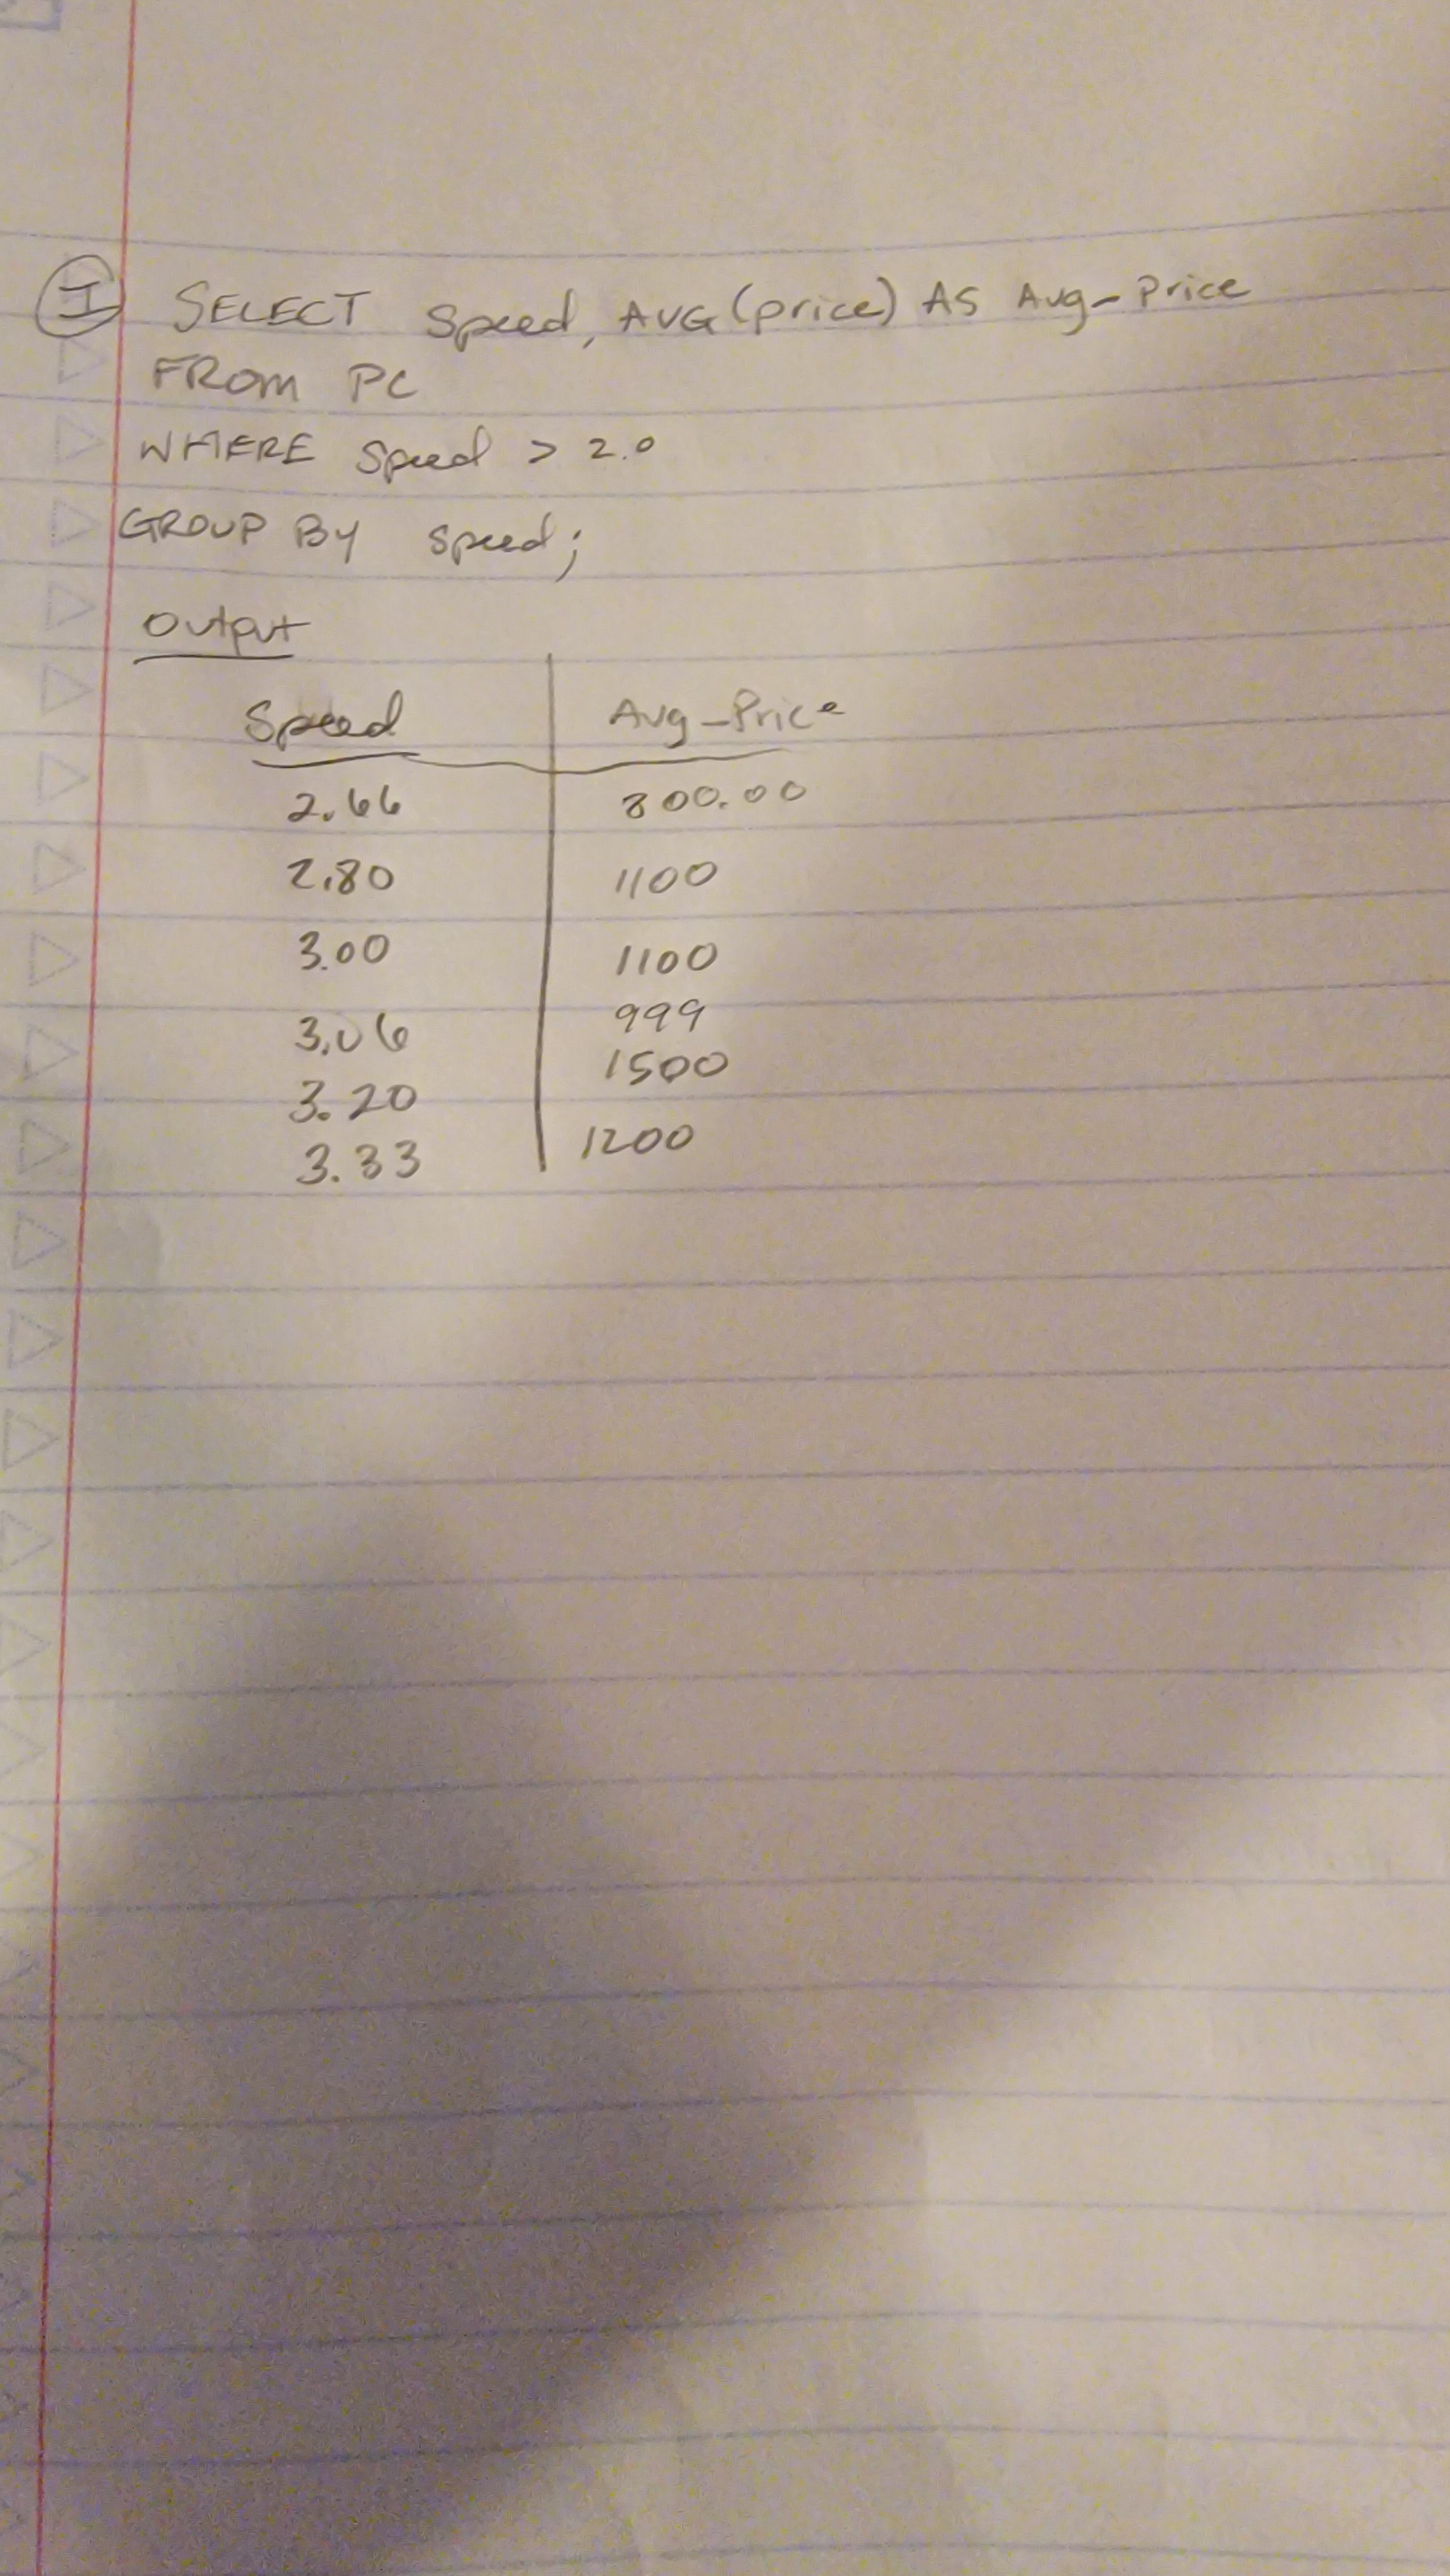 I SELECT speed, AVG(price) AS Avg-Price
FROM PC
WHERE speed > 2.0
GROUP BY speed;
Output
Speed Avg-Price
2.66 800.00
2.80 1100
3.00 1100
3.06 999
3.20 1500
3.33 1200